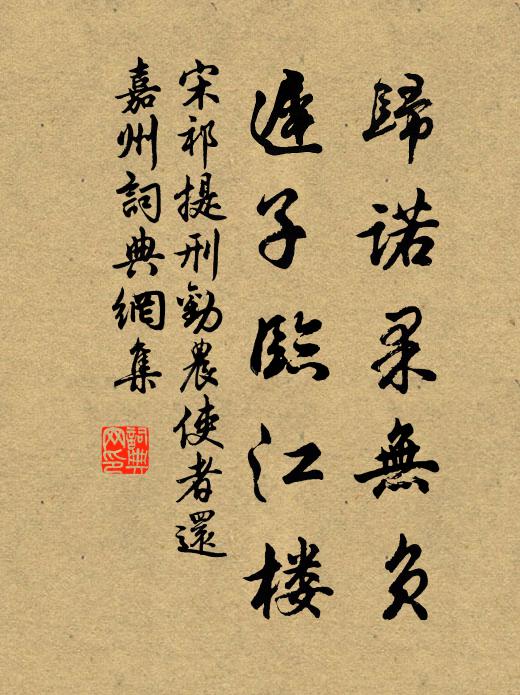 歸諾果無負
遲子臨江楼
宋祁提刑勸農使者還
嘉州詞典網集
詞典网印